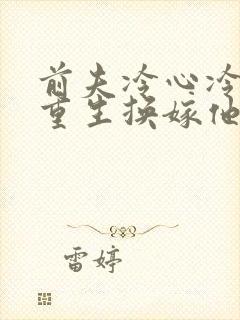 前夫冷心冷
重生换嫁他
雷婷